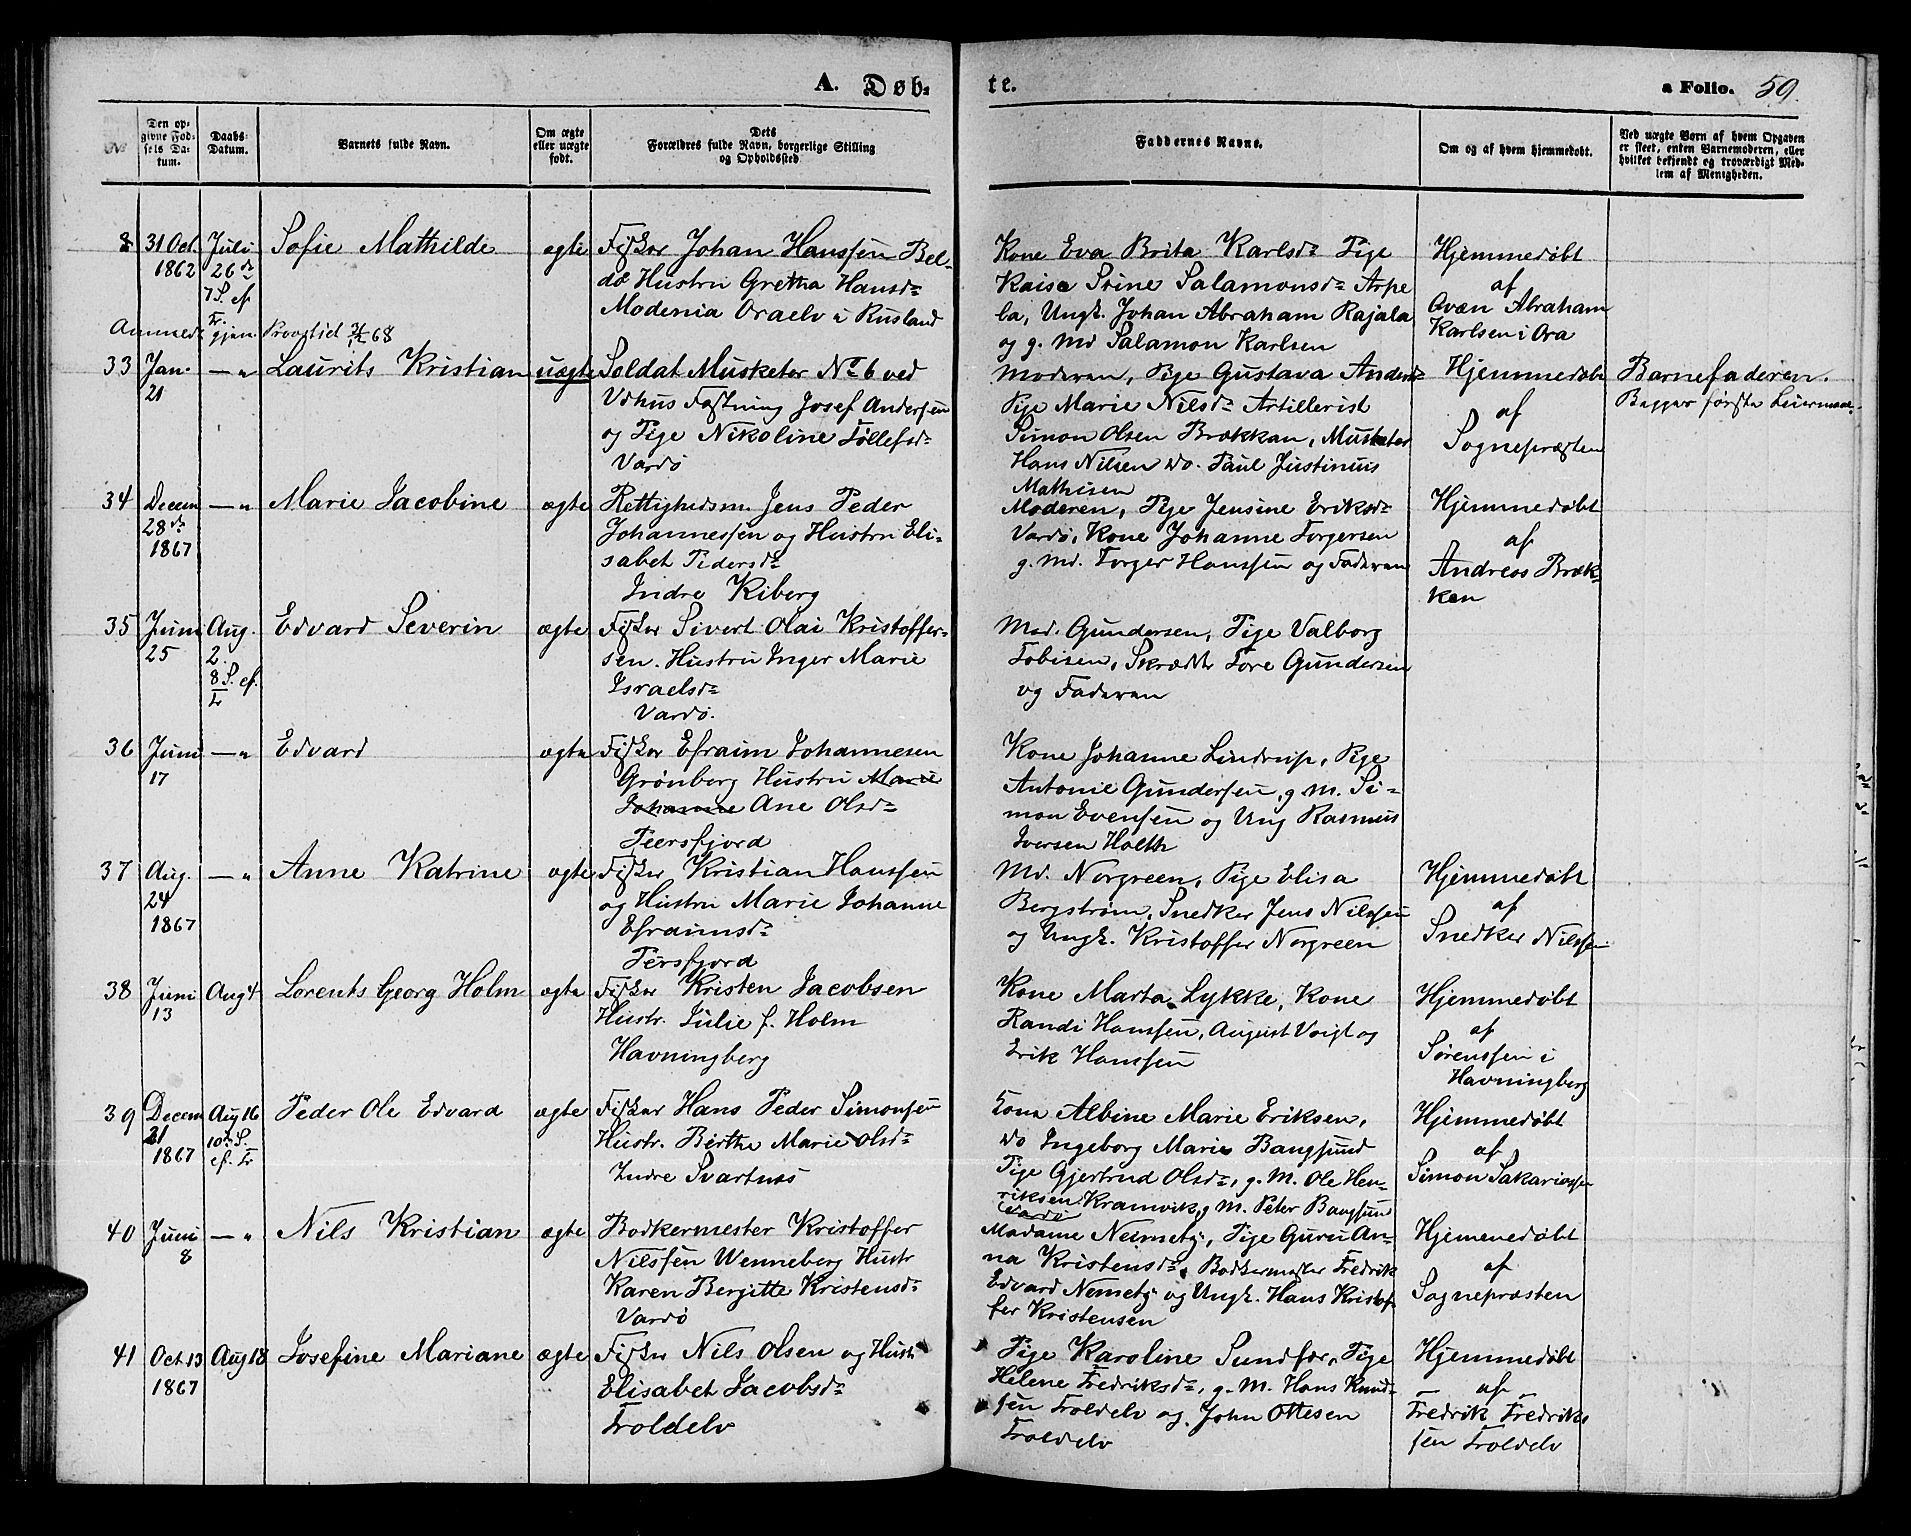 A. Døb-
te.
a Folio. 59.
No
Den op-
givne Fød-
sels Da-
tum.
Daabs-
Datum.
Barnets fulde Navn.
Om ægte
eller uægte
født.
Dets
Forældres fulde Navn, borgerlige Stilling
og Opholdssted
Faddernes Navne.
Om og af hvem hjemmedøbt.
Ved uægte Børn af hvem Opgaven
er skeet, enten Barnemoderen, eller
hvilket bekjendt og troværdigt Med-
lem af Menigheden.
8
31 Oct.
1862
Juli
26 de
7 S. ef.
Tr.
Sofie Mathilde
ægte
Fisker Johan Hanssen Bel-
do Hustru Gretha Hansd-
Modenia Oraelv i Rusland
Kone Eva Brita Karlsd- Pige
Kaisa Stine Salamonsd- Arpe
la, Ungk. Johan Abraham Rajala
og g. Md Salamon Karlsen
Hjemmedøbt
af
Qvæn Abraham
Karlsen i Ora
Anmeldt gjen. Provstiet 68
33
Jan.
21
— "
Laurits Kristian
uægte
Soldat Musketer No 6 ved
Vdhus Fæstning Josef Andersen
og Pige Nikoline Tollefsd-
Vardø
Moderen, Pige Gustava Andersd-
Pige Marie Nilsd- Artillerist
Simon Olsen Brækkan, Musketer
Hans Nilsen do. Paul Justinus
Mathisen
Hjemmedøbt
af
Sognepræsten
Barnefaderen.
Begges første Leiermaal
34
Decem
28 de
1867
— "
Marie Jacobine
ægte
Rettighedsm. Jens Peder
Johannessen og Hustru Eli-
sabet Pedersd-
Indre Kiberg
Moderen, Pige Jensine Eriksd-
Vardø, Kone Johanne Torgersen
g. Md. Torger Hanssen og Faderen
Hjemmedøbt
af
Andreas Bræk-
ken
35
Juni
25
Aug.
2.
8 S. ef.
Tr
Edvard Severin
ægte
Fisker Sivert Olai Kristoffer-
sen. Hustru Inger Marie
Israelsd-
Vardø.
Mad. Gundersen, Pige Valborg
Tobisen, Skrædk Tore Gundersen
og Faderen
36
Juni
17
— "
Edvard
ægte
Fisker Efraim Johannesen
Grønberg Hustru Marie
Johanne Ane Olsd-
Peersfjord
Kone Johanne Lindrup, Pige
Antonie Gundersen, g. M. Si-
mon Evensen og Ung Rasmus
Iversen Holth
37
Aug.
24
1867
— "
Anne Katrine
ægte
Fisker Kristian Hanssen
og Hustru Marie Johanne
Efraimsd-
Persfjord
Md. Norgreen, Pige Elisa
Bergstrøm, Snedker Jens Nilssen
og Ungk. Kristoffer Norgreen
Hjemmedøbt
af
Snedker Nilssen
38
Juni
13
Aug 4
Lorents Georg Holm
ægte
Fisker Kristen Jacobsen
Hustr. Julie f. Holm
Havningberg
Kone Marta Lykke, Kone
Randi Hanssen, August Voigt og
Erik Hanssen
Hjemmedøbt
af
Sørenssen i
Havningberg
39
Decem
21
1867
Aug 16
10de S.
ef. Tr
Peder Ole Edvard
ægte
Fisker Hans Peder Simonsen
Hustr. Birthe Marie Olsd-
Indre Svartnæs
Kone Albine Marie Eriksen,
do Ingeborg Marie Bangsund
Pige Gjertrud Olsd-, g. M. Ole Hen-
riksen Kramvik, g M. Peter Bangsun
Vardø
Hjemmedøbt
af
Simon Sakariassen
40
Juni
8
— "
Nils Kristian
ægte
Bødkermester Kristoffer
Nilssen Wenneberg Hustr
Karen Bergitte Kristensd-
Vardø
Madame Neimety, Pige Guru An-
na Kristensd-, Bødkermester Fredrik
Edvard Nemety og Ungk. Hans Kristof-
fer Kristensen
Hjemmedøbt
af
Sognepræsten
41
Oct 13
1867
Aug 18
Josefine Mariane
ægte
Fisker Nils Olsen og Hust.
Elisabet Jacobsd-
Troldelv
Pige Karoline Sundfær, Pige
Helene Fredriksd-, g. M. Hans Knud-
sen Troldelv og John Ottesen
Troldelv
Hjemmedøbt
af
Fredrik Fredrik-
sen Troldelv